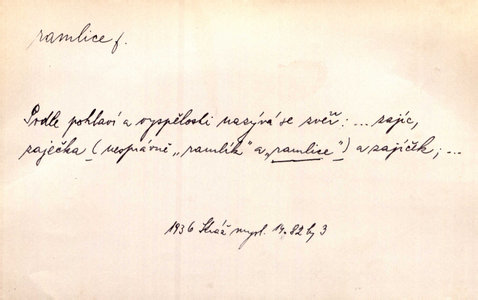 ramlice f.
Podle pohlaví a vyspělosti nazývá se zvěř: ... zajíc,
zaječka (nesprávně „ramlík" a „ramlice") a zajíček; ...
1936 mysl. 14. 82 b, 3